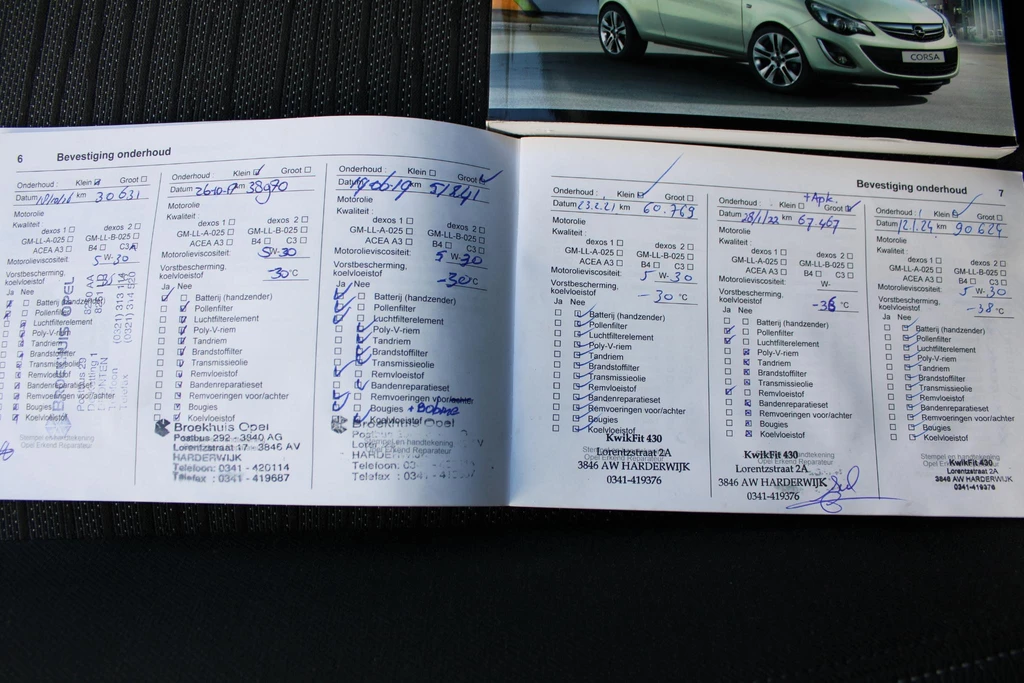 CORSA
6 Bevestiging onderhoud
Onderhoud : Klein Groot
Datum km 30631
Motorolie
Kwaliteit
dexos 1 dexos 2
GM-LL-A-025 GM-LL-B-025
ACEA A3 B4 C3
Motorolieviscositeit: 5 W-30
Vorstbescherming,
koelvloeistof
Ja Nee
Batterij (handzender)
Pollenfilter
Luchtfilterelement
Poly-V-riem
Tandriem
Brandstoffilter
Transmissieolie
Remvloeistof
Bandenreparatieset
Remvoeringen voor/achter
Bougies
Koelvloeistof
BROEKHUIS OPEL
Onderhoud : Klein Groot
Datum 26-10-17 km 38970
Motorolie
Kwaliteit :
dexos 1 dexos 2
GM-LL-A-025 GM-LL-B-025
ACEA A3 B4 C3
Motorolieviscositeit: 5W-30
Vorstbescherming,
koelvloeistof -30°C
Ja Nee
Batterij (handzender)
Pollenfilter
Luchtfilterelement
Poly-V-riem
Tandriem
Brandstoffilter
Transmissieolie
Remvloeistof
Bandenreparatieset
Remvoeringen voor/achter
Bougies
Koelvloeistof
Broekhuis Opel
Postbus 292 - 3840 AG
Lorentzstraat 17 - 3846 AV
HARDERWIJK
Telefoon: 0341 - 420114
Telefax : 0341 - 419687
Onderhoud : Klein Groot
Datum km 51841
Motorolie
Kwaliteit :
dexos 1 dexos 2
GM-LL-A-025 GM-LL-B-025
ACEA A3 B4 C3
Motorolieviscositeit: 5 W-30
Vorstbescherming,
koelvloeistof -30°C
Ja Nee
Batterij (handzender)
Pollenfilter
Luchtfilterelement
Poly-V-riem
Tandriem
Brandstoffilter
Transmissieolie
Remvloeistof
Bandenreparatieset
Remvoeringen voor/achter
Bougies
Koelvloeistof
Broekhuis Opel
Bevestiging onderhoud 7
Onderhoud : Klein Groot
Datum 23.2.21 km 60.769
Motorolie
Kwaliteit :
dexos 1 dexos 2
GM-LL-A-025 GM-LL-B-025
ACEA A3 B4 C3
Motorolieviscositeit: 5 W-30
Vorstbescherming,
koelvloeistof -30°C
Ja Nee
Batterij (handzender)
Pollenfilter
Luchtfilterelement
Poly-V-riem
Tandriem
Brandstoffilter
Transmissieolie
Remvloeistof
Bandenreparatieset
Remvoeringen voor/achter
Bougies
Koelvloeistof
KwikFit 430
Lorentzstraat 2A
3846 AW HARDERWIJK
0341-419376
+Apk.
Onderhoud : Klein Groot
Datum 28/1/22 km 67467
Motorolie
Kwaliteit :
dexos 1 dexos 2
GM-LL-A-025 GM-LL-B-025
ACEA A3 B4 C3
Motorolieviscositeit: W-
Vorstbescherming,
koelvloeistof °C
Ja Nee
Batterij (handzender)
Pollenfilter
Luchtfilterelement
Poly-V-riem
Tandriem
Brandstoffilter
Transmissieolie
Remvloeistof
Bandenreparatieset
Remvoeringen voor/achter
Bougies
Koelvloeistof
KwikFit 430
Lorentzstraat 2A
3846 AW HARDERWIJK
0341-419376
Onderhoud : Klein Groot
Datum 12.1.24 km 90624
Motorolie
Kwaliteit :
dexos 1 dexos 2
GM-LL-A-025 GM-LL-B-025
ACEA A3 B4 C3
Motorolieviscositeit: 5 W-30
Vorstbescherming,
koelvloeistof -38°C
Ja Nee
Batterij (handzender)
Pollenfilter
Luchtfilterelement
Poly-V-riem
Tandriem
Brandstoffilter
Transmissieolie
Remvloeistof
Bandenreparatieset
Remvoeringen voor/achter
Bougies
Koelvloeistof
KwikFit 430
Lorentzstraat 2A
3846 AW HARDERWIJK
0341-419376